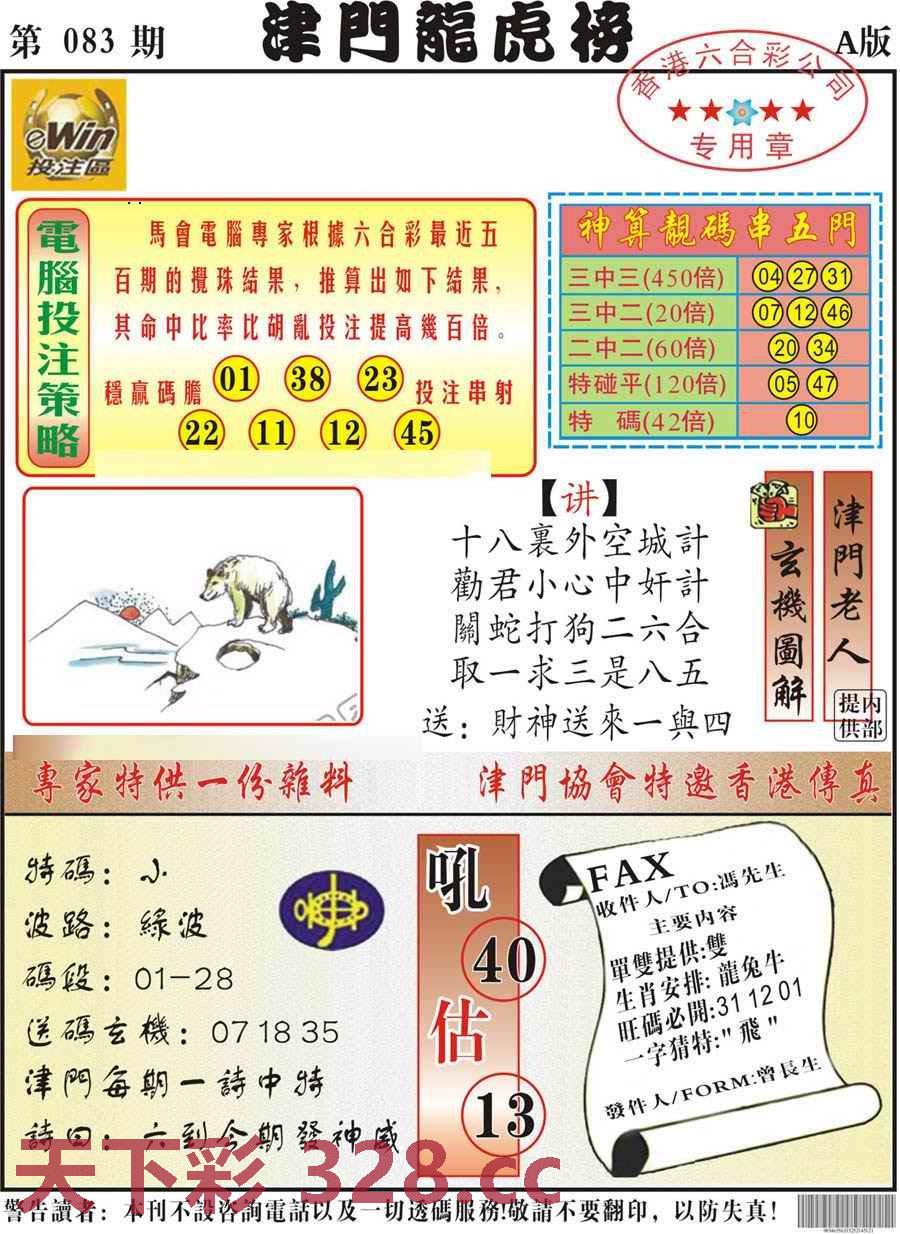 第 083 期
津門龍虎榜
A版
香港六合彩公司
专用章
eWin
投注區
電腦投注策略
馬會電腦專家根據六合彩最近五
百期的攪珠結果，推算出如下結果，
其命中比率比胡亂投注提高幾百倍。
穩贏碼膽 01 38 23 投注串射
22 11 12 45
神算靚碼串五門
三中三(450倍) 04 27 31
三中二(20倍) 07 12 46
二中二(60倍) 20 34
特碰平(120倍) 05 47
特 碼(42倍) 10
【讲】
十八裏外空城計
勸君小心中奸計
關蛇打狗二六合
取一求三是八五
送：財神送來一與四
玄機圖解
津門老人
提供
内部
專家特供一份雜料
津門協會特邀香港傳真
特碼：小
波路：綠波
碼段：01-28
送碼玄機：07 18 35
津門每期一詩中特
詩曰：六到今期發神威
吼
40
估
13
FAX
收件人/TO:馮先生
主要内容
單雙提供:雙
生肖安排: 龍兔牛
旺碼必開:31 12 01
一字猜特:"飛"
發件人/FORM:曾長生
天下彩 328.cc
警告讀者：本刊不設咨詢電話以及一切透碼服務!敬請不要翻印，以防失真!